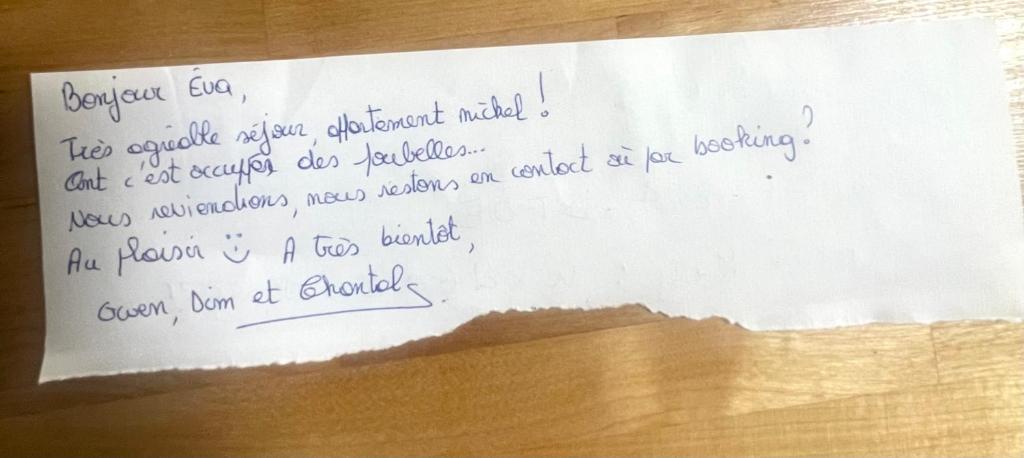 Bonjour Éva,
Très agréable séjour, appartement nickel !
Ont c'est occuper des poubelles...
Nous reviendrons, nous restons en contact où par booking ?
Au plaisir :) A très bientôt,
Gwen, Dim et Chantal.